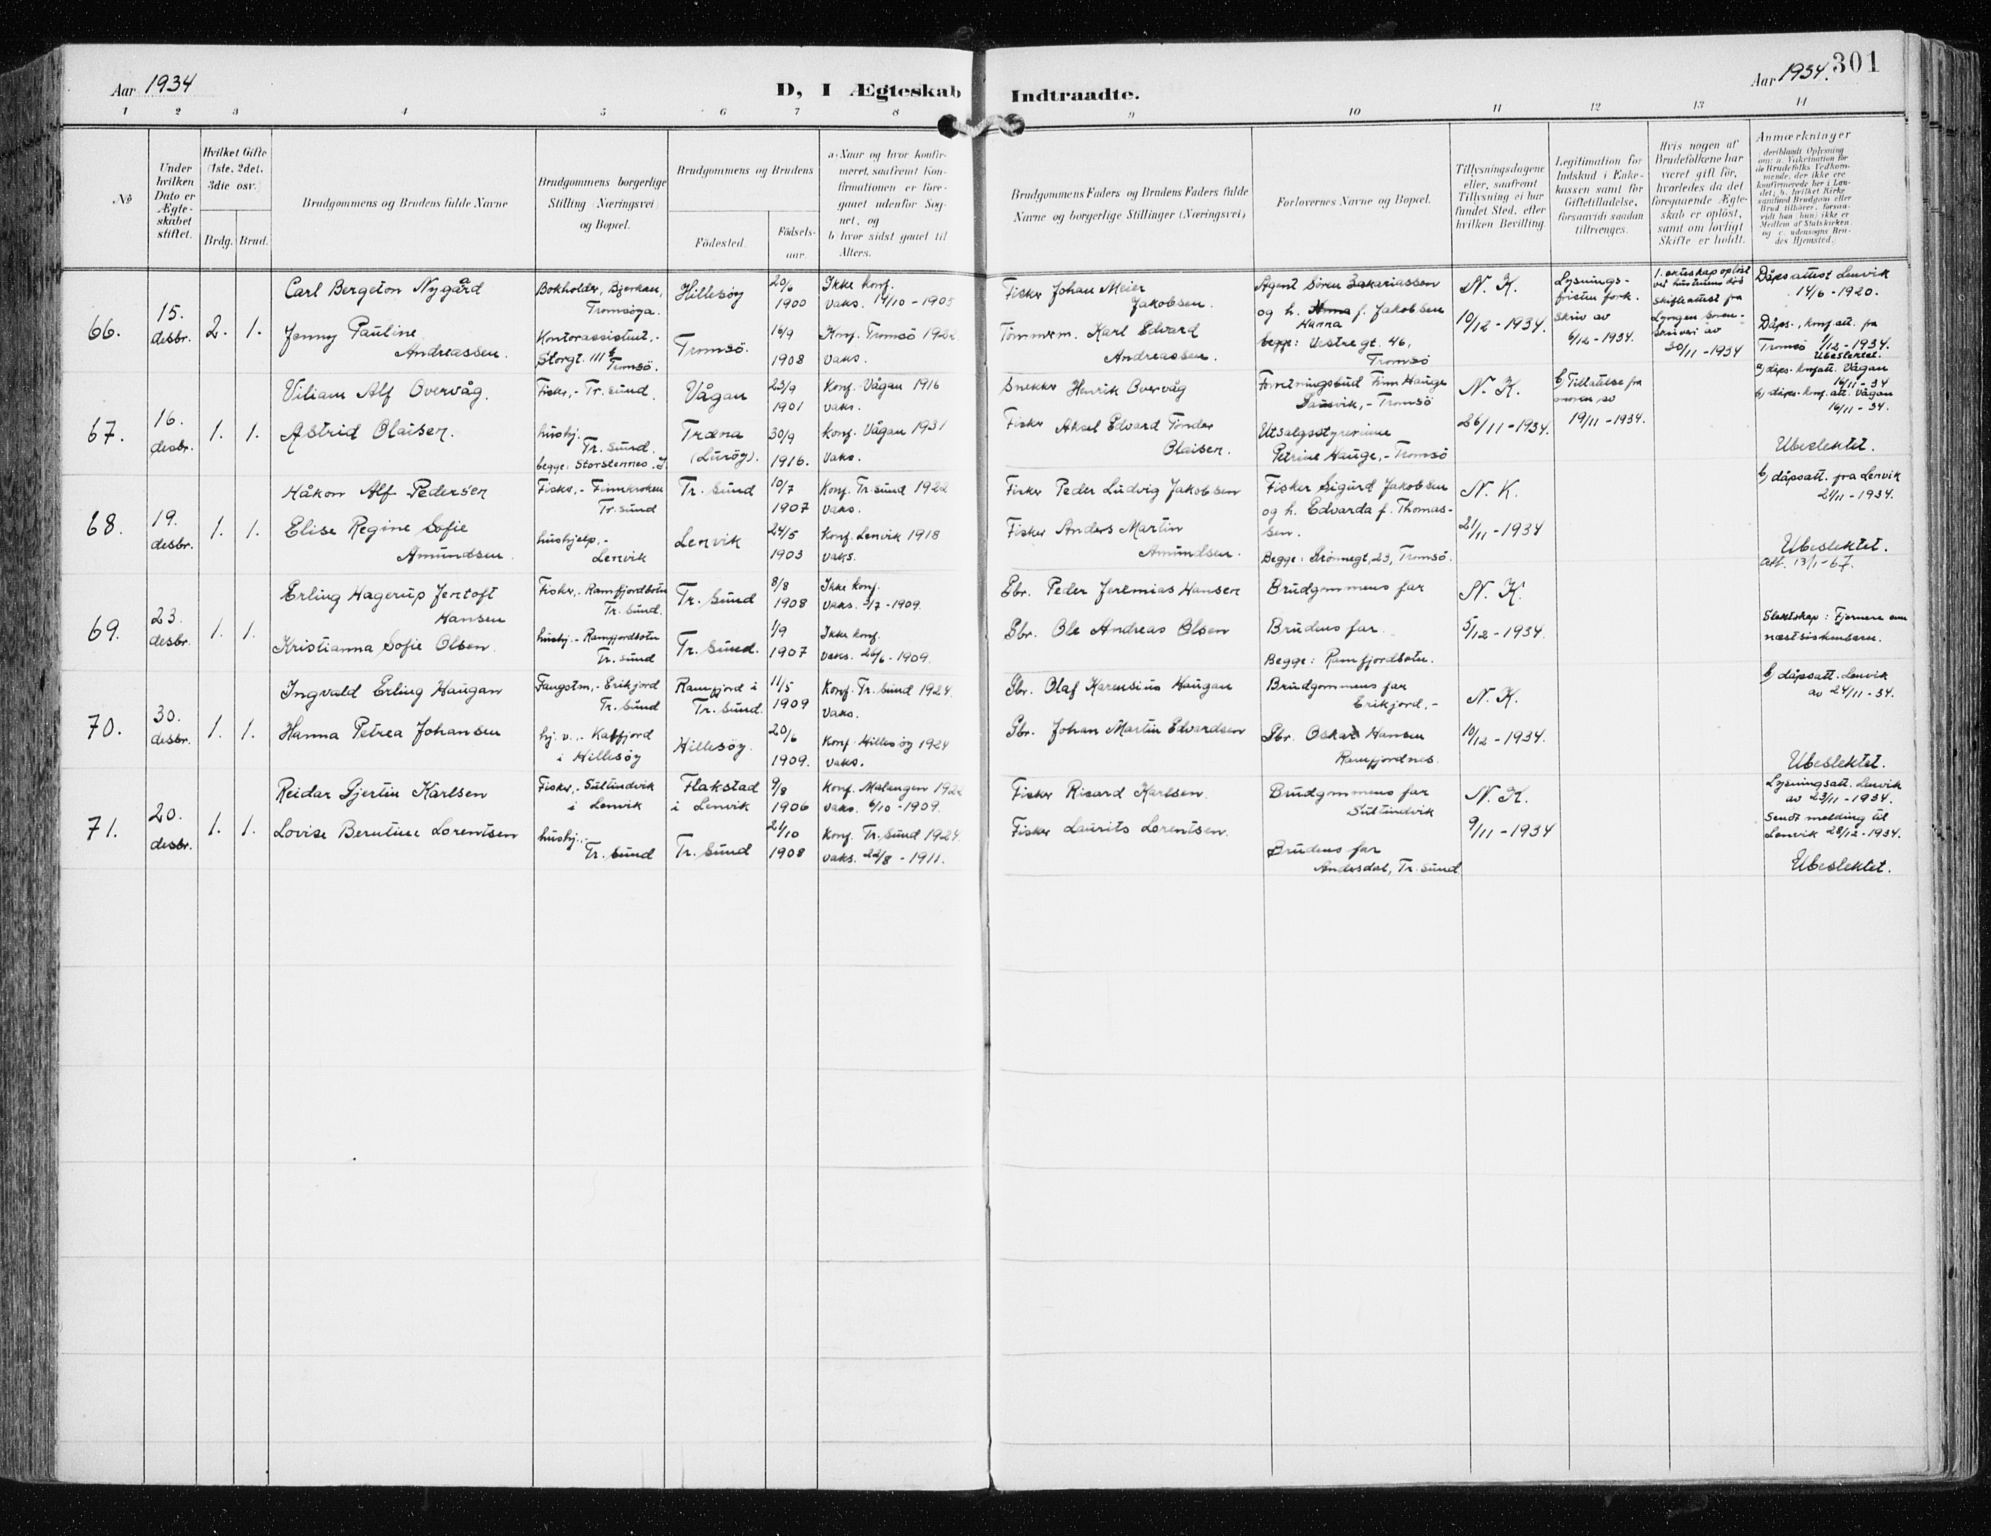 Aar 1934
D, I Ægteskab
Indtraadte.
Aar 1934. 301
1 2 3 4 5 6 7 8 9 10 11 12 13 14
No
Under hvilken Dato er Ægteskabet stiftet.
Hvilket Gifte (1ste, 2det, 3die osv.)
Brdg. Brud.
Brudgommens og Brudens fulde Navne
Brudgommens borgerlige Stilling (Næringsvei) og Bopæl.
Brudgommens og Brudens
Födested.
Födselsaar.
a) Naar og hvor konfirmeret, saafremt Konfirmationen er foregaaet udenfor Sognet, og
b) hvor sidst gaaet til Alters.
Brudgommens Faders og Brudens Faders fulde Navne og borgerlige Stillinger (Næringsvei)
Forlovernes Navne og Bopæl.
Tillysningsdagene eller, saafremt Tillysning ei har fundet Sted, efter hvilken Bevilling.
Legitimation for Indskud i Enkekassen samt for Giftetilladelse, forsaavidt saadan tiltrænges.
Hvis nogen af Brudefolkene har været gift för, hvorledes da det foregaaende Ægteskab er oplöst, samt om lovligt Skifte er holdt.
Anmærkninger
deriblandt Oplysning om: a. Vakcination for de Brudefolks Vedkommende, der ikke ere konfirmerede her i Landet; b. hvilket Kirkesamfund Brudgom eller Brud tilhörer, forsaavidt han (hun) ikke er Medlem af Statskirken og c. udensogns Brudes Hjemsted.
66.
15. desbr.
2. 1.
Carl Bergeton Nygård
Jenny Pauline
Andreassen.
Bokholder, Bjerkan,
Tromsøya.
Kontorassistent,-
Storgt. 111 b
Tromsö.
Hillesöy
Tromsö.
20/6
1900
16/9
1908
Ikke konf.
vaks. 14/10 - 1905
Konf. Tromsö 1922
vaks.
Fisker Johan Meier
Jakobsen.
Tömmerm. Karl Edvard
Andreassen.
Agent Sören Zakariassen
og h. Anna f. Jakobsen
Hanna
begge: Vestregt. 46,
Tromsö
N. K.
10/12 - 1934.
Lysnings-
fristen fork.
skriv av
6/12 - 1934.
1. ekteskap oplöst
ved hustruens död
skifteattest fra
Lyngen Soren-
skriveri av
30/11 - 1934
Dåpsattest Lenvik
14/6 - 1920.
Dåps-, konf. att. fra
Tromsö 1/12 - 1934.
Ubeslektet.
67.
16. desbr.
1. 1.
Viliam Alf Overvåg.
Astrid Olaisen.
Fisker,- Tr. sund.
hushj.
Tr. sund.
begge: Storstennes.
Vågan
Træna
(Luröy).
23/9
1901
30/9
1916.
Konf. Vågan 1916
vaks.
Konf. Vågan 1931
vaks.
Snekker Henrik Overvåg
Fisker Aksel Edvard Tönder
Olaisen.
Forretningsbud Finn Hauge
- Tromsö
Utsalgsstyrerinne
Petrine Hauge,- Tromsö
N. K.
26/11 - 1934.
b) Tillatelse fra
moren av
19/11 - 1934.
a) dåps- konf. att. Vågan
16/11 - 34
b) dåps- konf. att. Vågan
16/11 - 34.
Ubeslektet.
68.
19. desbr.
1. 1.
Håkon Alf Pedersen
Elise Regine Sofie
Amundsen.
Fisker,- Finnkroken
Tr. sund
hushjelp,-
Lenvik
Tr. sund
Lenvik
10/7
1907
24/5
1903
Konf. Tr. sund 1922
vaks.
Konf. Lenvik 1918
vaks.
Fisker Peder Ludvig Jakobsen
Fisker Anders Martin
Amundsen.
Fisker Sigurd Jakobsen
og h. Edvarda f. Thomas-
sen.
Begge: Grönnegt. 23, Tromsö.
N. K.
21/11 - 1934
b) dåpsatt. fra Lenvik
21/11 - 1934.
Ubeslektet.
att. 13/1-67.
69.
23. desbr.
1. 1.
Erling Hagerup Jentoft
Hansen
Kristianna Sofie Olsen.
Fisker,- Ramfjordbotn
Tr. sund.
hushj.- Ramfjordbotn
Tr. sund
Tr. sund
Tr. sund.
8/8
1908
1/9
1907
Ikke konf.
vaks. 3/7 - 1909.
Ikke konf.
vaks. 26/6 - 1909.
Gbr. Peder Jeremias Hansen
Gbr. Ole Andreas Olsen
Brudgommens far
Brudens far.
Begge: Ramfjordbotn.
N. K.
5/12 - 1934.
Slektskap: Fjernere enn
næstsöskenbarn.
70.
30. desbr.
1. 1.
Ingvald Erling Haugan
Hanna Petrea Johansen
Fangstm,- Erikjord
Tr. sund
hj. v.,- Kaffjord
i Hillesöy
Ramfjord i
Tr. sund.
Hillesöy.
11/5
1909
20/6
1909.
Konf. Tr. sund 1924.
vaks.
Konf. Hillesöy 1924
vaks.
Gbr. Olaf Karensius Haugan
Gbr. Johan Martin Edvardsen
Brudgommens far
Erikjord,-
Gbr. Oskar Hansen
Ramfjordnes.
N. K.
10/12 - 1934.
b) dåpsatt. Lenvik
av 24/11 - 34.
Ubeslektet.
71.
20. desbr.
1. 1.
Reidar Gjertin Karlsen
Lovise Berntine Lorentsen
Fisker,- Sultindvik
i Lenvik
hushj.-
Tr. sund
Flakstad
i Lenvik
Tr. sund
9/8
1906
21/10
1908
Konf. Malangen 1922
vaks. 6/10 - 1909.
Konf. Tr. sund 1924.
vaks. 22/8 - 1911.
Fisker Rikard Karlsen.
Fisker Laurits Lorentsen.
Brudgommens far
Sultindvik
Brudens far
Andersdal, Tr. sund.
N. K.
9/11 - 1934
Lysningsatt. Lenvik
av 23/11 - 1934.
Sendt melding til
Lenvik 28/12 - 1934.
Ubeslektet.